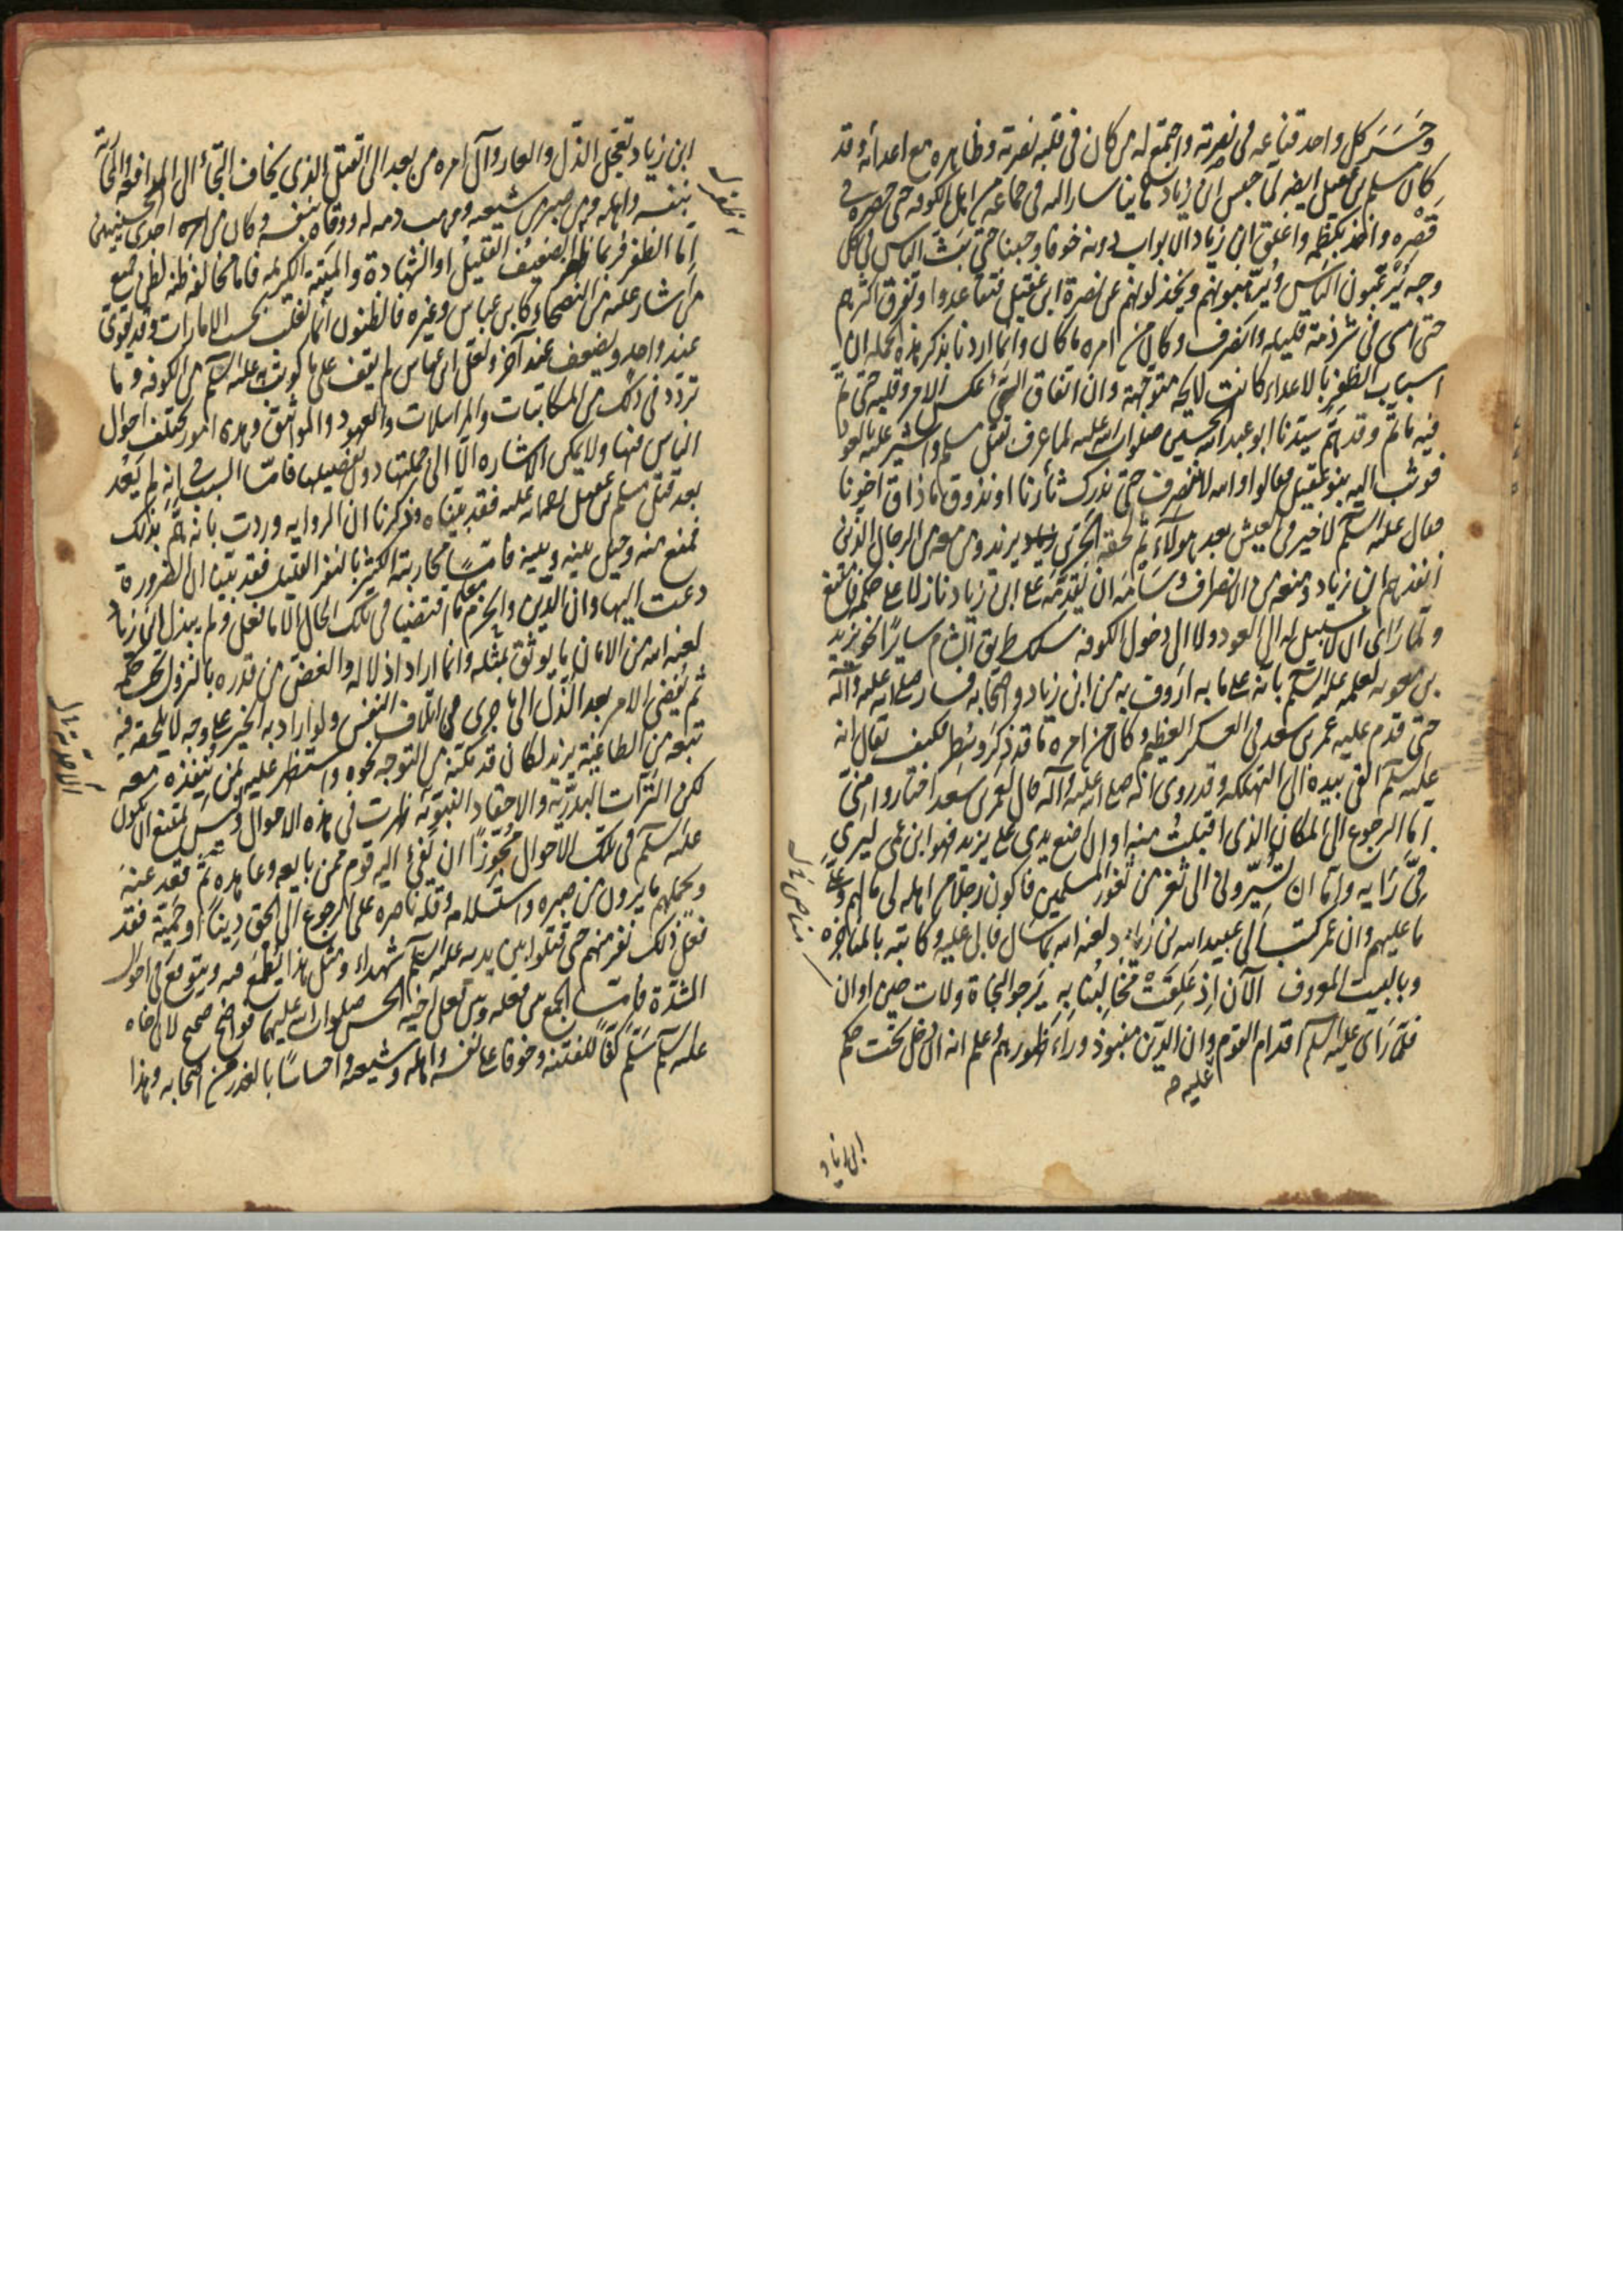 وحَسَرَ كل واحد قناعه فى نصرته واجتمع له من كان فى قلبه نصرته وظاهره مع اعدائه وقد
كان مسلم بن عقيل ايضا لما حبس ابن زياد هانيا سار اليه فى جماعه من اهل الكوفه حتى حصره فى
قَصْرِه واخذ بكظمه واغلق ابن زياد الابواب دونه خوفا وجبنا حتى بَثَّ الناس فى كل
وجه يُرَغّبون الناس ويُرَهّبونهم ويخذلونهم عن نصرة ابن عقيل فتقاعدوا وتفرق اكثرهم
حتى امسى فى شرذمة قليله وانصرف وكان من امره ما كان وانما اردنا بذكر هذه الجمله ان
اسباب الظفر بالاعداء كانت لايحه متوجّهة وان اتفاق السّيّئ عكس الامر وقلبه حتى تم
فيه ما تمّ وقد همّ سيدنا ابو عبد الله الحسين صلوات الله عليه لما عرف بقتل مسلم واشير عليه بالعود
فوثب اليه بنو عقيل فقالوا والله لا ننصرف حتى ندرك ثأرنا او نذوق ما ذاق اخونا
فقال عليه السلم لا خير فى العيش بعد هولآء ثم لحقه الحُرّ بن يزيد ومن معه من الرجال الذين
انفذهم ابن زياد ومنعه من الانصراف وسَامَه ان يُقَدِّمَه على ابن زياد نازلا على حكمه فامتنع
ولمّا رَاى ان لا سبيل له الى العود ولا الى دخول الكوفه سلك طريق الشام سايرًا نحو يزيد
بن معويه لعلمه عليه السلم بانّه على ما به ارَوف به من ابن زياد واصحابه فسار صلى الله عليه وآله
حتى قدم عليه عمر بن سعد فى العسكر العظيم وكان من امره ما قد ذُكِرَ وسُطِر فكيف يقال انه
عليه السلم القى بيده الى التهلكه وقد روى انه صلى الله عليه وآله قال لعمر بن سعد اختاروا منّى
امّا الرجوع الى المكان الذى اقبلتُ منه او ان اضع يدى على يزيد فهو ابن عمى ليرى
فِىَّ رَايه وامّا ان تُسَيّرونى الى ثغر من ثغور المسلمين فاكون رجلا من اهله لى ما لهم وعلىّ
ما عليهم وان عمر كتب الى عبيد الله بن زياد لعنه الله بما سَال فابى عليه وكاتبه بالمناجزه
وبالبيت المعروف الآن اِذ عَلِقَتْ مَخَالِبُنا بِهِ يَرجو النجاة ولات حين اوان
فلمّا رَاى عليه السلم اقدام القوم عليه وان الدّين منبوذ وراء ظهورهم وعلم انه ان دخل تحت حكم
ابن زياد
ابن زياد تعجّل الذّل والعار وآل امره من بعد الى القتل الذى يخاف التجأ الى المدافعه والمحاربة
بنفسه واهله ومن صبر من شيعته ووهب دمه له ووقاه بنفسه وكان بين احدى الحسنيين
امّا الظفر فربما ظفر الضعيف القليل او الشهادة والميتة الكريمه فاما مخالفه ظنه لظن جميع
من اشار عليه من النصحاء كابن عباس وغيره فالظنون انما تغلب بحسب الامارات وقد يقوى
عند واحد ويضعف عند آخر ولعل ابن عباس لم يقف على ما كوتب به عليه السلم من الكوفه وما
تردّد فى ذلك من المكاتبات والمراسلات والعهود والمواثيق وهذه امور تختلف احوال
الناس فيها ولا يمكن الاشاره الا الى جملتها دون تفصيلها فامّا السبب فى انه لم يَعُد
بعد قتل مسلم بن عقيل رحمه الله عليه فقد بيّناه وذكرنا ان الروايه وردت بانه همَّ بذلك
فمنع منه وحيل بينه وبينه فامّا محاربة الكثير بالنفر القليل فقد بينا ان الضرورة
دعت اليها وان الدّين والحزم معا ما اقتضيا فى تلك الحال الا ما فعل ولم يبذل ابن زياد
لعنه الله من الامان ما يوثق بمثله وانما اراد اذلاله والغضّ من قدره بالنزول تحت حكمه
ثم يُفضى الامر بعد الذّل الى ما جرى من اتلاف النفس ولو اراد به الخير على وجه لا يلحقه فيه
تبعه من الطاغية يزيد لكان قد مكّنه من التوجه نحوه واستظهر عليه بمن يُنفذه معه
لكن التراث البدريّة والاحقاد النبويّة ظهرت فى هذه الاحوال وليس يمتنع ان يكون
عليه السلم فى تلك الاحوال مُجَوّزًا ان يَفئ اليه قوم ممن بايعه وعاهده ثُمّ قعد عنه
ويحملهم ما يرون من صبره واستسلامه وقله ناصره على الرجوع الى الحق دِينًا او حَميّة فقد
فعل ذلك نفر منهم حتى قتلوا بين يديه عليه السلم شهداء ومثل هذا يُطْمَع فيه ويتوقع فى احوال
الشدّة فامّا الجمع بين فعله وبين فعل اخيه الحسن صلوات الله عليهما فواضح صحيح لان اخاه
عليه السلم سَلّم كفًّا للفتنه وخوفا على نفسه واهله وشيعته واحساسًا بالغدر من اصحابه وهذا